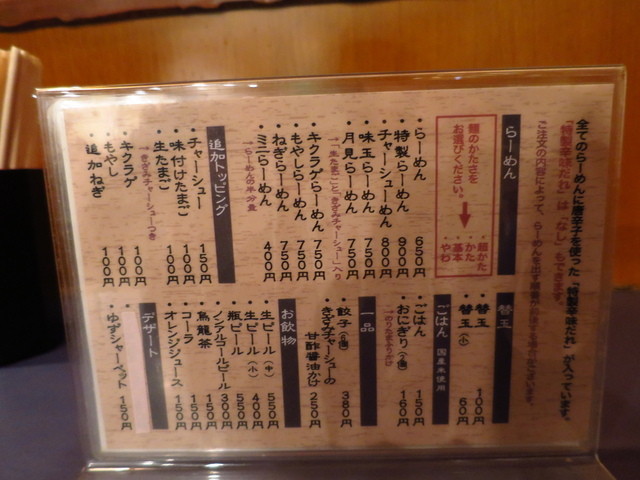 全てのらーめんに唐辛子を使った「特製辛味だれ」が入っています。
「特製辛味だれ」は「なし」もできます。
ご注文の内容によって、らーめんを出す順番が前後する場合がございます。
らーめん
麺のかたさを
お選びください。
麺かた
かた
基本
やわ
らーめん 650円
特製らーめん 900円
チャーシューめん 800円
味玉らーめん 750円
月見らーめん 750円
→「生たまご」と「きざみチャーシュー」入り
キクラゲらーめん 750円
もやしらーめん 750円
ねぎらーめん 750円
ミニらーめん 400円
→らーめんの半分量
追加トッピング
チャーシュー 150円
味付けたまご 100円
生たまご 100円
→きざみチャーシューつき
キクラゲ 100円
もやし 100円
追加ねぎ 100円
替玉
替玉 100円
替玉(小) 60円
ごはん 国産米使用
ごはん 150円
おにぎり(2個) 160円
→のりたまふりかけ
一品
餃子(6個) 380円
きざみチャーシューの
甘酢醤油かけ 250円
お飲物
生ビール(中) 550円
生ビール(小) 400円
瓶ビール 550円
ノンアルコールビール 300円
烏龍茶 150円
コーラ 150円
オレンジジュース 150円
デザート
ゆずシャーベット 150円